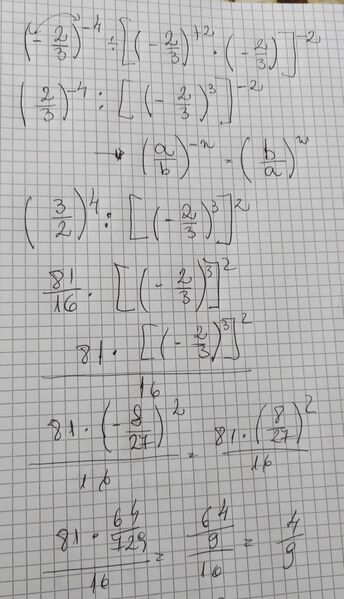 (- 2/3)^-4 ÷ [(- 2/3)^+2 · (- 2/3)]^-2
(2/3)^-4 : [(- 2/3)^3]^-2
→ (a/b)^-n = (b/a)^n
(3/2)^4 : [(- 2/3)^3]^2
81/16 · [(- 2/3)^3]^2
81 · [(- 2/3)^3]^2 / 16
81 · (- 8/27)^2 / 16 = 81 · (8/27)^2 / 16
81 · 64/729 / 16 = 64/9 / 16 = 4/9